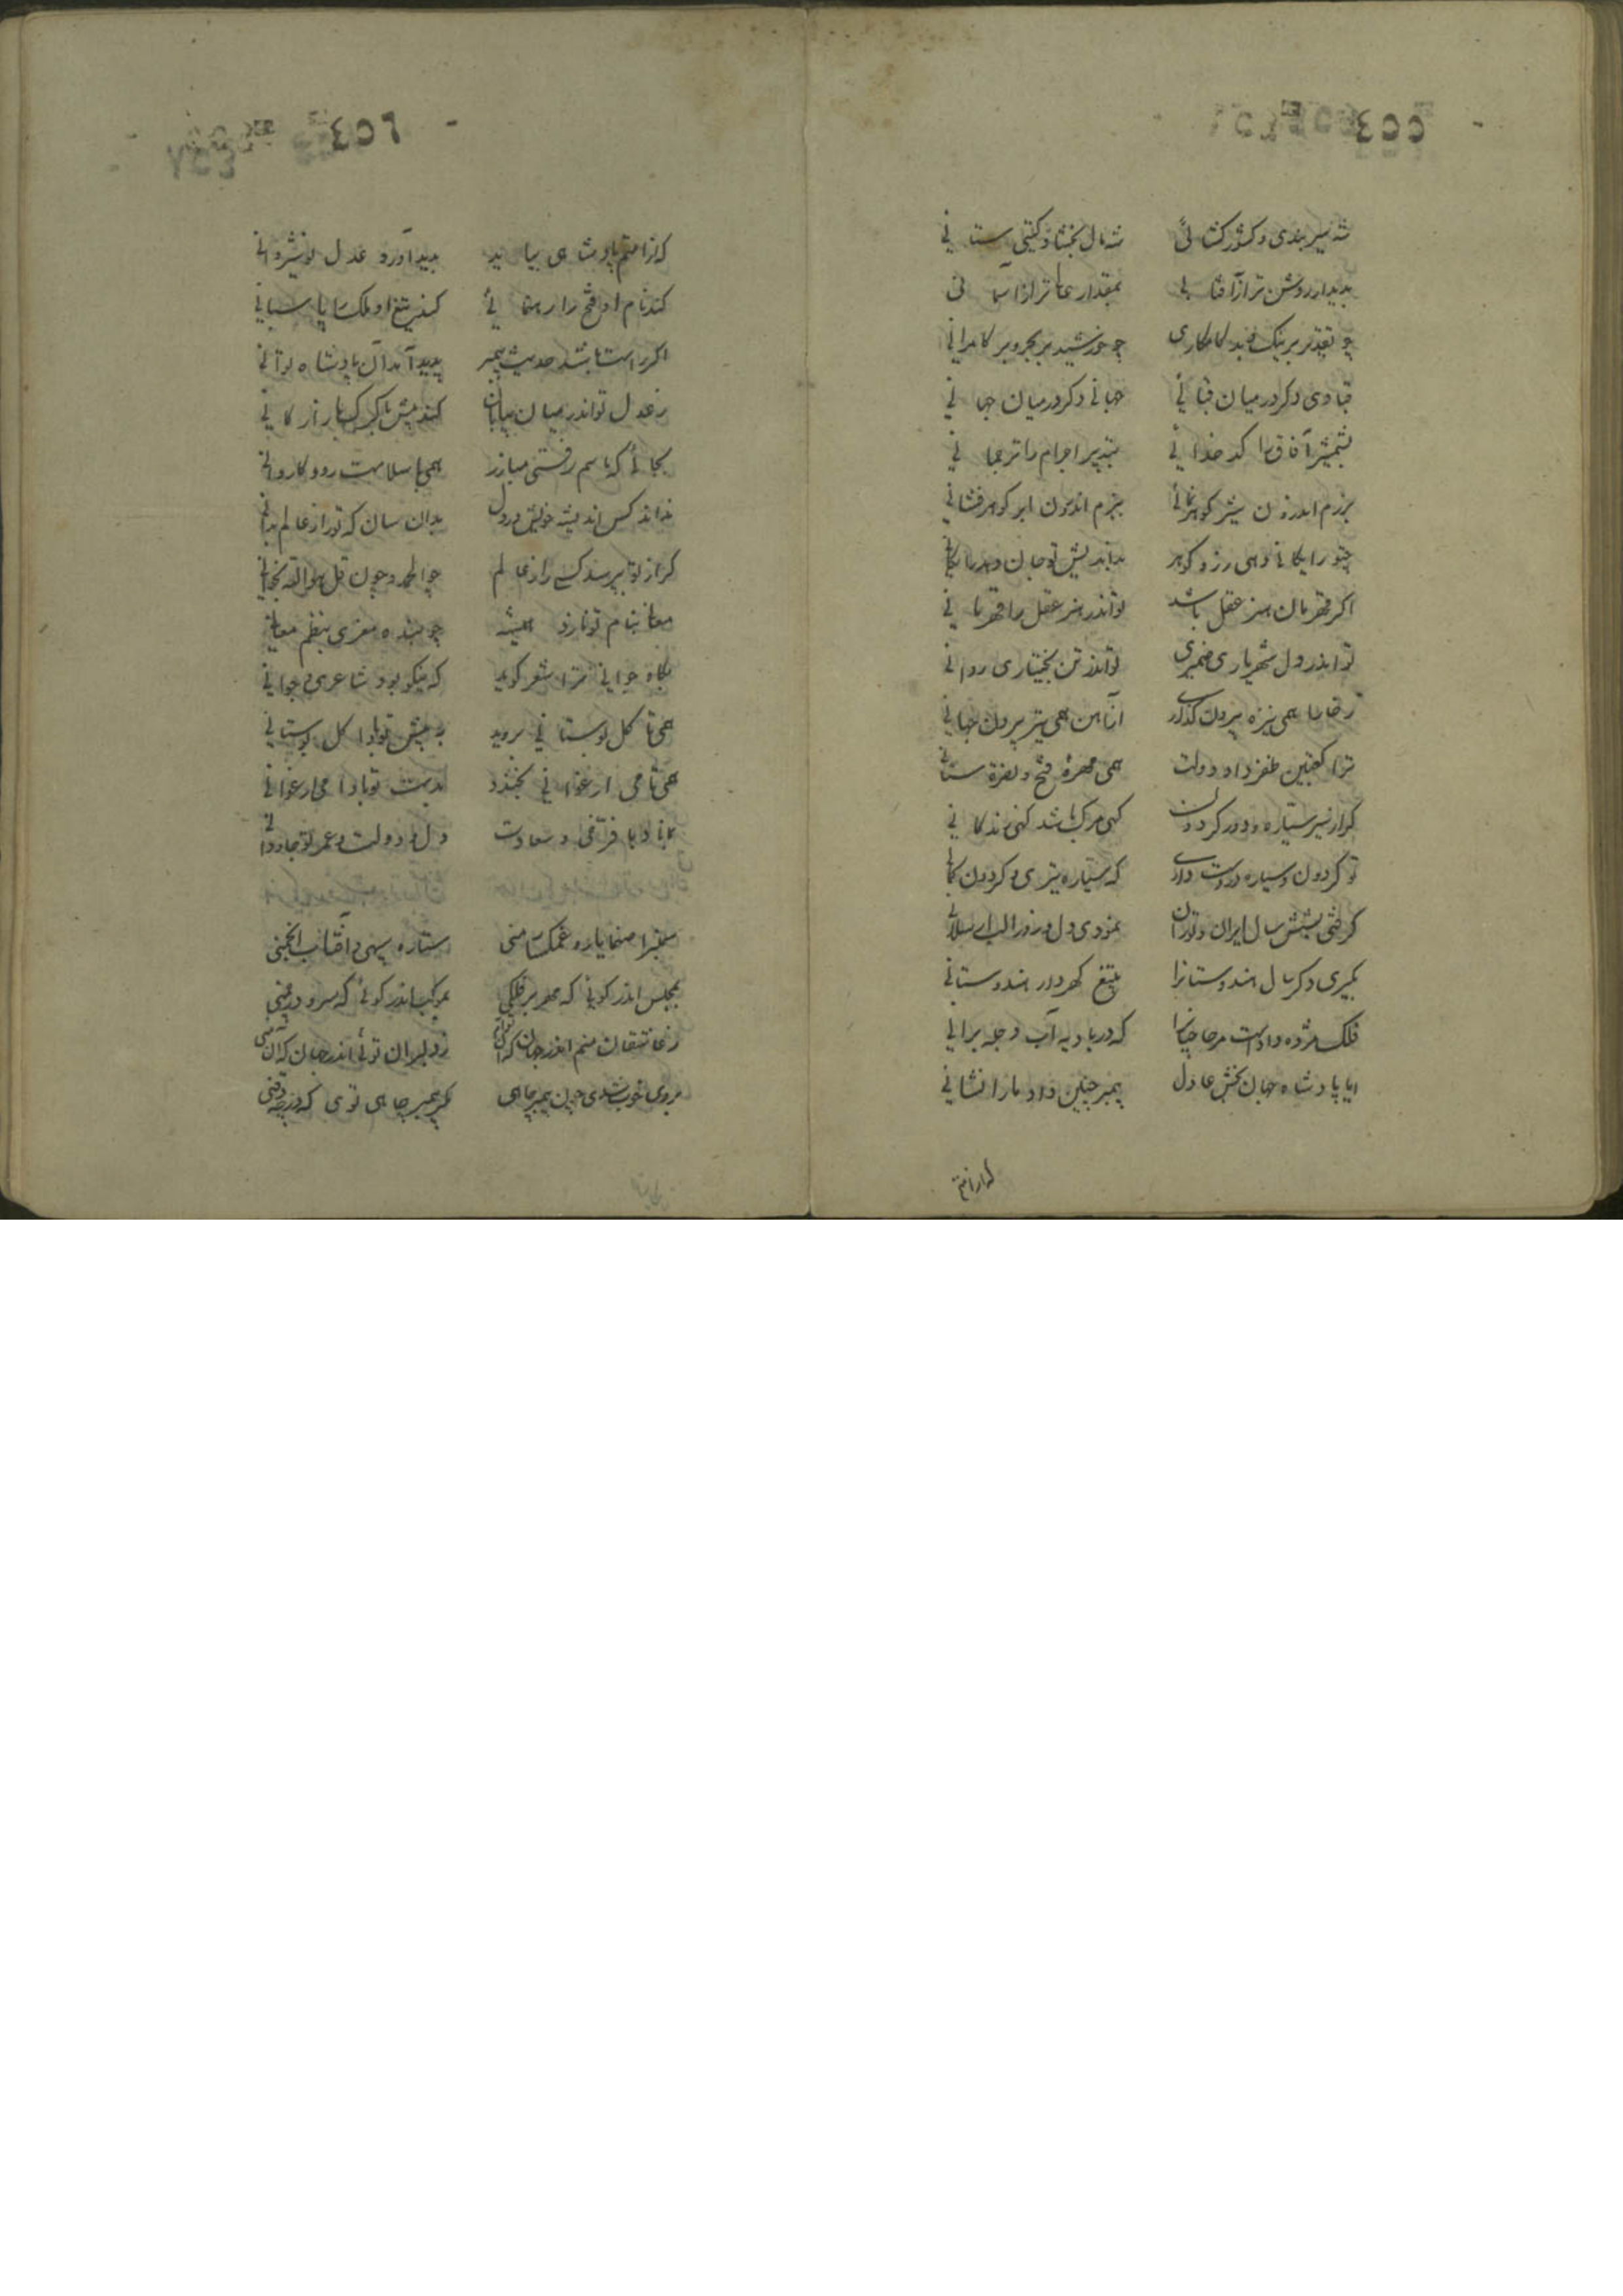 ٤٥٥
شه شیر بندی و کشور کشائی شه مال بخشا و کیتی ستانی
بدیدار روشن تر از آفتابی بمقدار عالی تر از آسمانی
چو تقدیر بر نیک و بد کامکاری چو خورشید بر بحر و بر کامرانی
قبادی دکر در میان قبائی جهانی دکر در میان جهانی
بشمشیر آفاق را کدخدائی بتدبیر اجرام را ترجمانی
برزم اندرون شیر کوهر نمائی ببزم اندرون ابر کوهر فشانی
اکر قهرمان هنر عقل باشد تو اندر هنر عقل را قهرمانی
تو اندر دل شهریاری ضمیری تو اندر تن بختیاری روانی
همی نیزه بیرون کذاری همی تیر بیرون جهانی
ترا کعبتین ظفر داد دولت همی مهره فتح و نصرة ستانی
کر از سیر ستیاره و دور کردون کهی مرک باشد کهی زندکانی
تو کردون و سیاره در دست داری که ستیاره تیری و کردون کمانی
کرفتی بشش سال ایران و توران
بکیری دکر سال هندوستانرا بتیغ کهردار هندوستانی
فلک مژده داد است
ایا پادشاه جهان بخش عادل پیمبر چنین داد ما را نشانی
٤٥٦
که از امتم پادشاهی بیاید بدید آورد عدل نوشیروانی
کند نام او فتح را رهنمائی کند تیغ او ملک را پاسبانی
اکر راست باشد حدیث پیمبر پدید آمد آن پادشاه تو آنی
ز عدل تو اندر میان بیابان کند میش با کرک بازارکانی
بجائی که با سهم رفتی مبارز همی با سلامت رود کاروانی
نداند کس اندیشه خویش در دل بدان سان که تو راز عالم بدانی
کر از تو بپرسد کسی راز عالم چو الحمد و چون قل هو الله بخوانی
معانی بنام تو نازد همیشه چو بنده معزی بنظم معانی
بکاه جوانی ترا شعر کوید که نیکو بود شاعری در جوانی
همی تا کل بوستانی بروید به پیش تو بادا کل بوستانی
همی تا می ارغوانی بخندد بدست تو بادا می ارغوانی
بماناد با فرخی و سعادت دل و دولت و عمر تو جاودانی
ستاره سپهی و آفتاب انجمنی
بمجلس اندر کوئی که مهر بر فلکی بموکب اندر کوئی که سرو در چمنی
ز عاشقان منم اندر جهان که آن توام ز دلبران توئی اندر جهان که آن منی
بروی خوب شدی چون پیمبر چاهی مکر پیمبر چاهی توی که در ذقنی